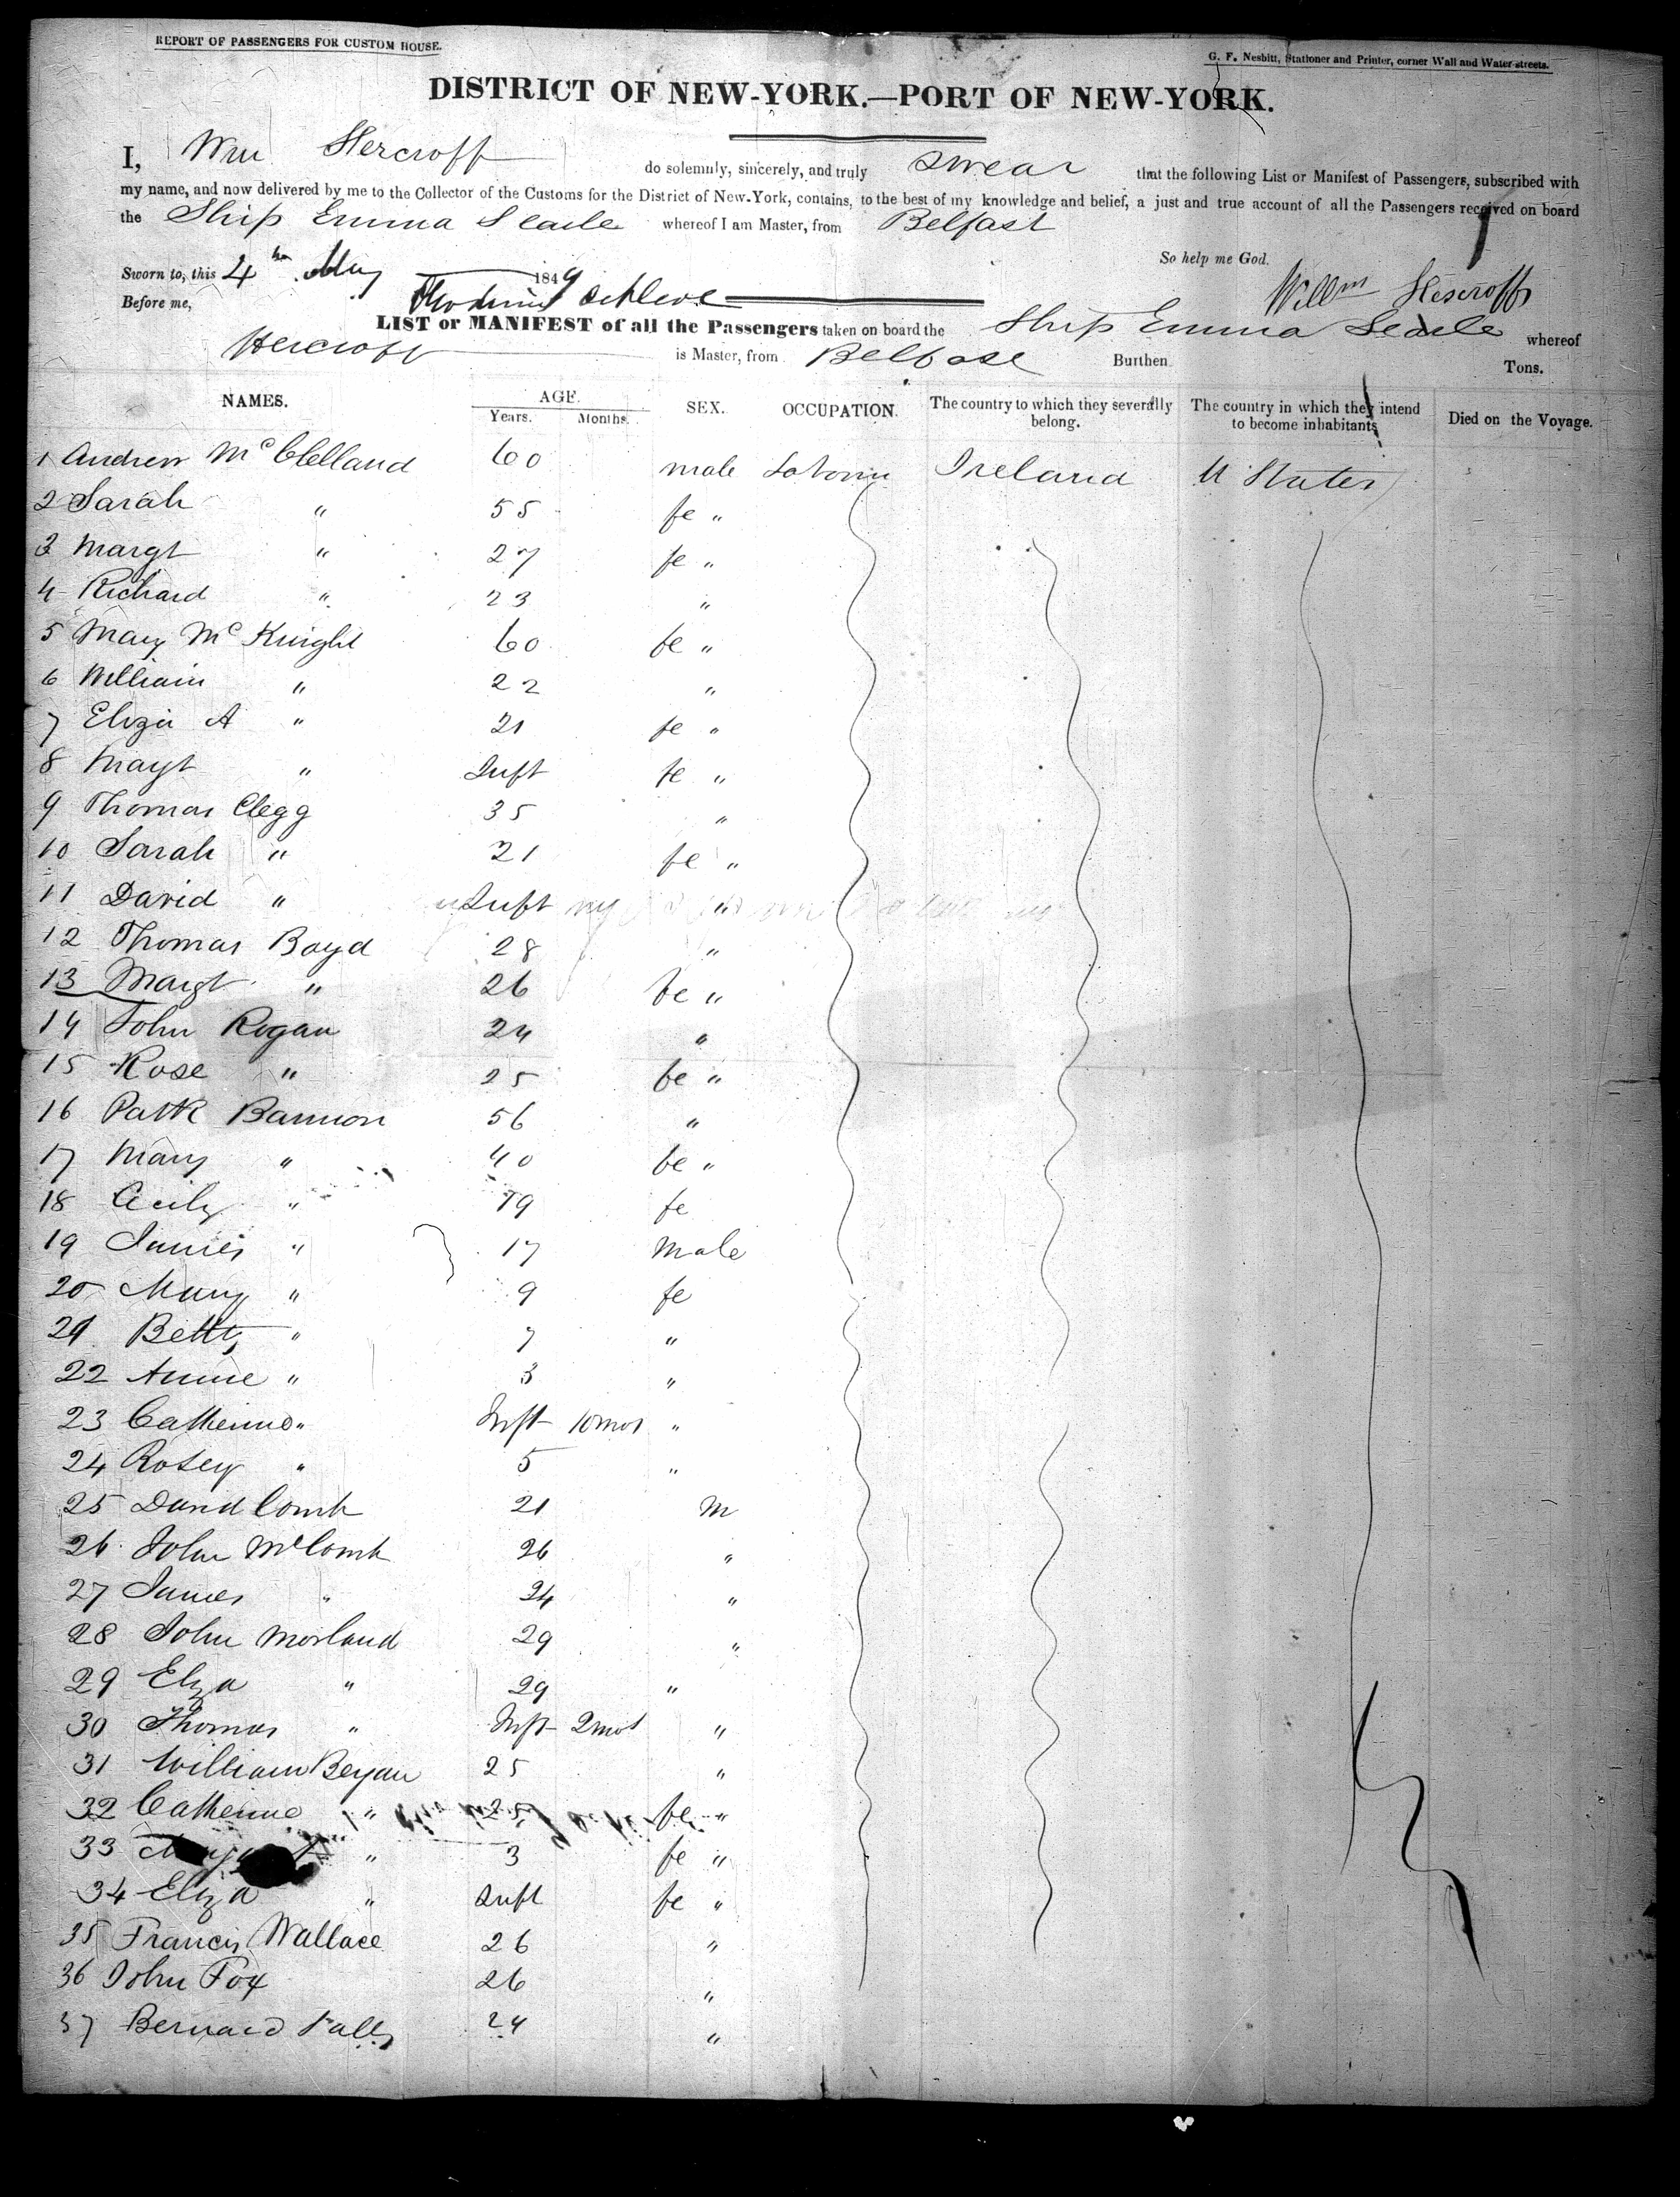 REPORT OF PASSENGERS FOR CUSTOM HOUSE.
G. F. Nesbitt, Stationer and Printer, corner Wall and Water-streets.
DISTRICT OF NEW-YORK.—PORT OF NEW-YORK.
I, Wm Hercroff do solemnly, sincerely, and truly swear that the following List or Manifest of Passengers, subscribed with
my name, and now delivered by me to the Collector of the Customs for the District of New-York, contains, to the best of my knowledge and belief, a just and true account of all the Passengers received on board
the Ship Emma Searle whereof I am Master, from Belfast
So help me God.
Sworn to, this 4th May 1849
Willm Hercroff
Before me,
LIST or MANIFEST of all the Passengers taken on board the Ship Emma Searle whereof
Hercroff is Master, from Belfast Burthen Tons.
NAMES. AGE. Years. Months. SEX. OCCUPATION. The country to which they severally belong. The country in which they intend to become inhabitants Died on the Voyage.
1 Andrew McClelland 60 male Ireland U States
2 Sarah " 55 fe "
3 Margt " 27 fe "
4 Richard " 23 "
5 Mary McKnight 60 fe "
6 William " 22 "
7 Eliza A " 21 fe "
8 Margt " Inft fe "
9 Thomas Clegg 35 "
10 Sarah " 21 fe "
11 David " Inft "
12 Thomas Boyd 28 "
13 Margt " 26 fe "
14 John Rogan 24 "
15 Rose " 25 fe "
16 Patk Bannon 56 "
17 Mary " 40 fe "
18 Cecily " 19 fe
19 James " 17 Male
20 Mary " 9 fe
21 Betty " 7 "
22 Annie " 3 "
23 Catherine " Inft 10 mos "
24 Rosey " 5 "
25 David Comb 21 M
26 John McComb 26 "
27 James " 24 "
28 John Morland 29 "
29 Eliza " 29 "
30 Thomas " Inft 2 mos "
31 William Beyan 25 "
32 Catherine " 25 fe "
33 " 3 fe "
34 Eliza " Inft fe "
35 Francis Wallace 26 "
36 John Fox 26 "
37 Bernard Falls 24 "